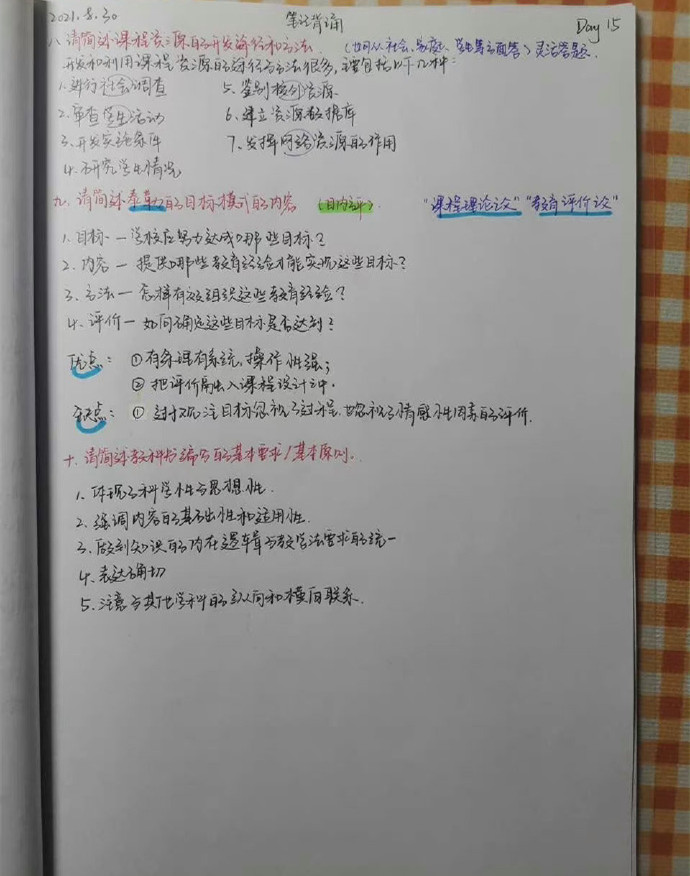 2021.8.30 笔记背诵 Day 15
八.请简述课程资源的开发途径和方法. (也可从社会、家庭、学生等方面答) 灵活答题.
开发和利用课程资源的途径与方法很多,主要包括以下几种:
1.进行社会调查 5.鉴别校外资源
2.审查学生活动 6.建立资源数据库
3.开发实施条件 7.发挥网络资源的作用
4.研究学生情况
九.请简述泰勒的目标模式的内容 (目内方评) "课程理论论" "教育评价论"
1.目标—学校应努力达成哪些目标?
2.内容—提供哪些教育经验才能实现这些目标?
3.方法—怎样有效组织这些教育经验?
4.评价—如何确定这些目标是否达到?
优点: ①有条理有系统,操作性强;
②把评价引入课程设计中.
缺点: ①过于关注目标忽视了过程,也忽视了情感性因素的评价.
十.请简述教科书编写的基本要求/基本原则.
1.体现了科学性与思想性.
2.强调内容的基础性和适用性.
3.做到知识的内在逻辑与教学法要求的统一
4.表达确切
5.注意与其他学科的纵向和横向联系.